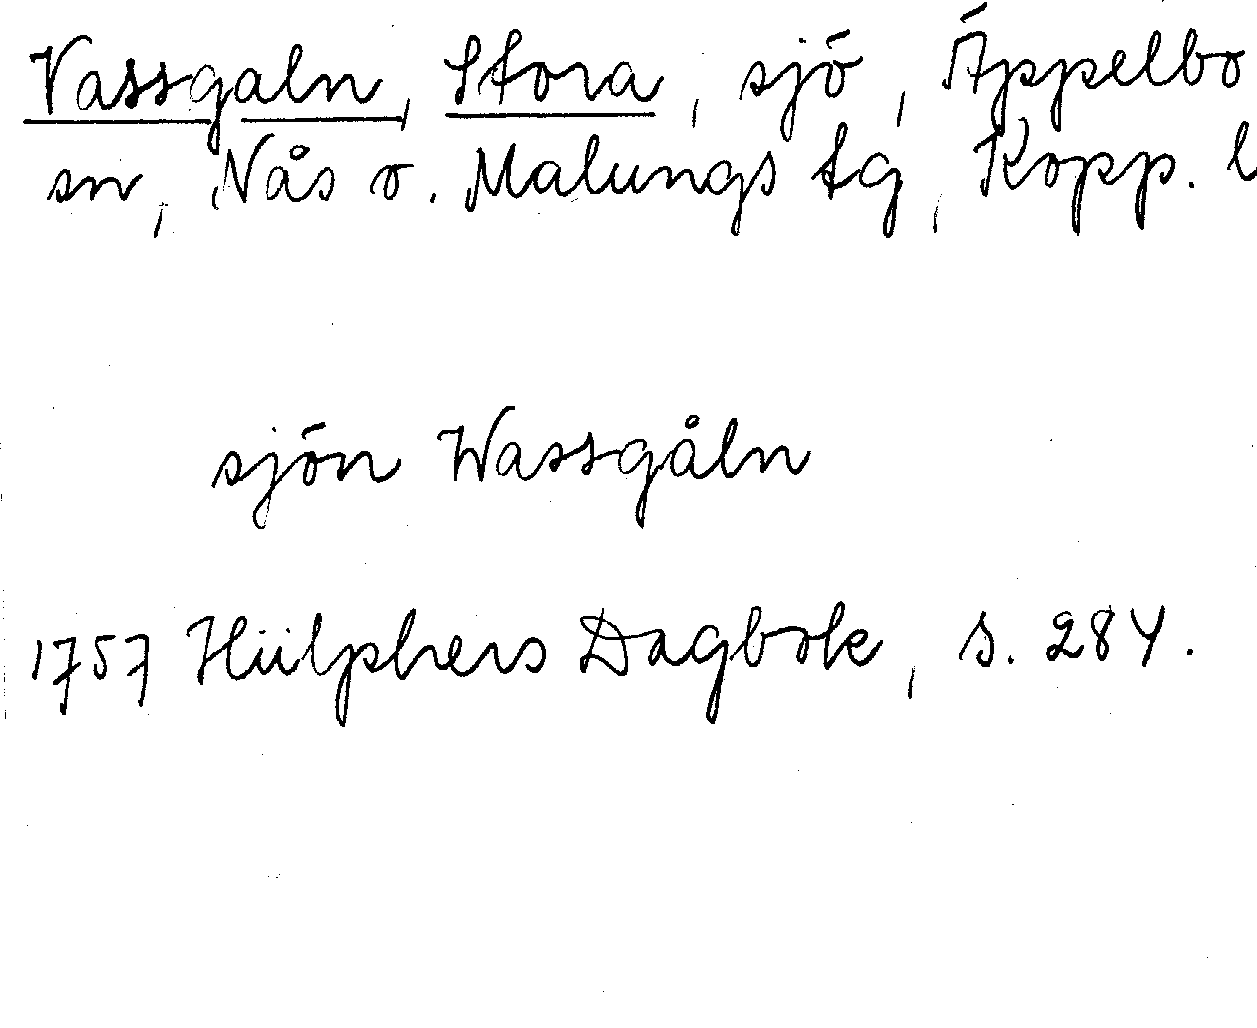 Vassgaln, Stora, sjö, Äppelbo
sn, Nås o. Malungs tg, Kopp. l
sjön Wassgåln
1757 Hülphers Dagbok, s. 284.